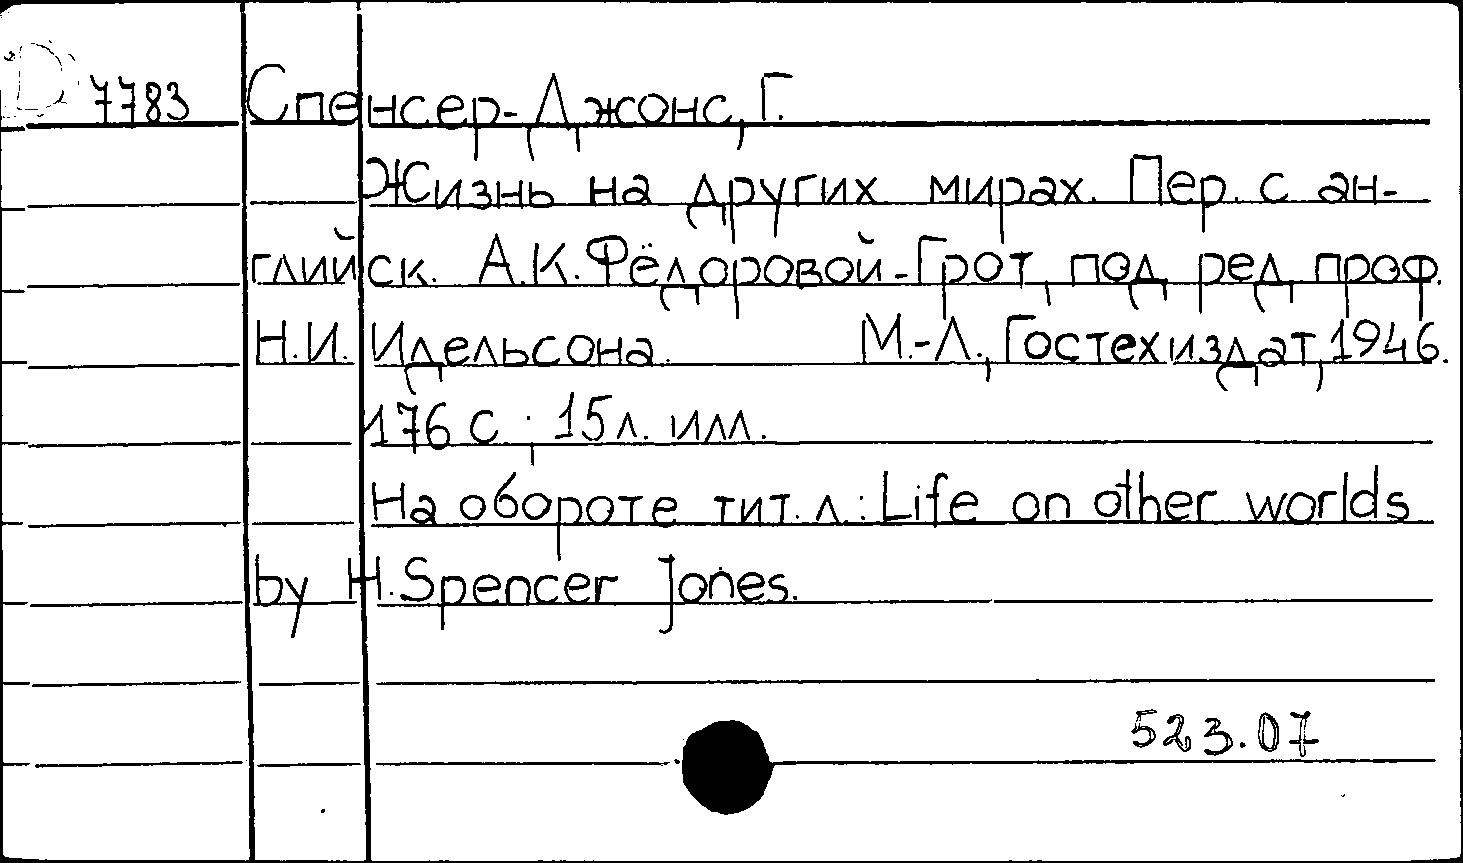 D 7783 Спенсер-Джонс, Г.
Жизнь на других мирах. Пер. с ан-
глийск. А.К. Фёдоровой-Грот, под ред. проф.
Н.И. Идельсона. М.-Л., Гостехиздат, 1946.
176 с ; 15 л. илл.
На обороте тит. л.: Life on other worlds
by H. Spencer Jones.
523.07